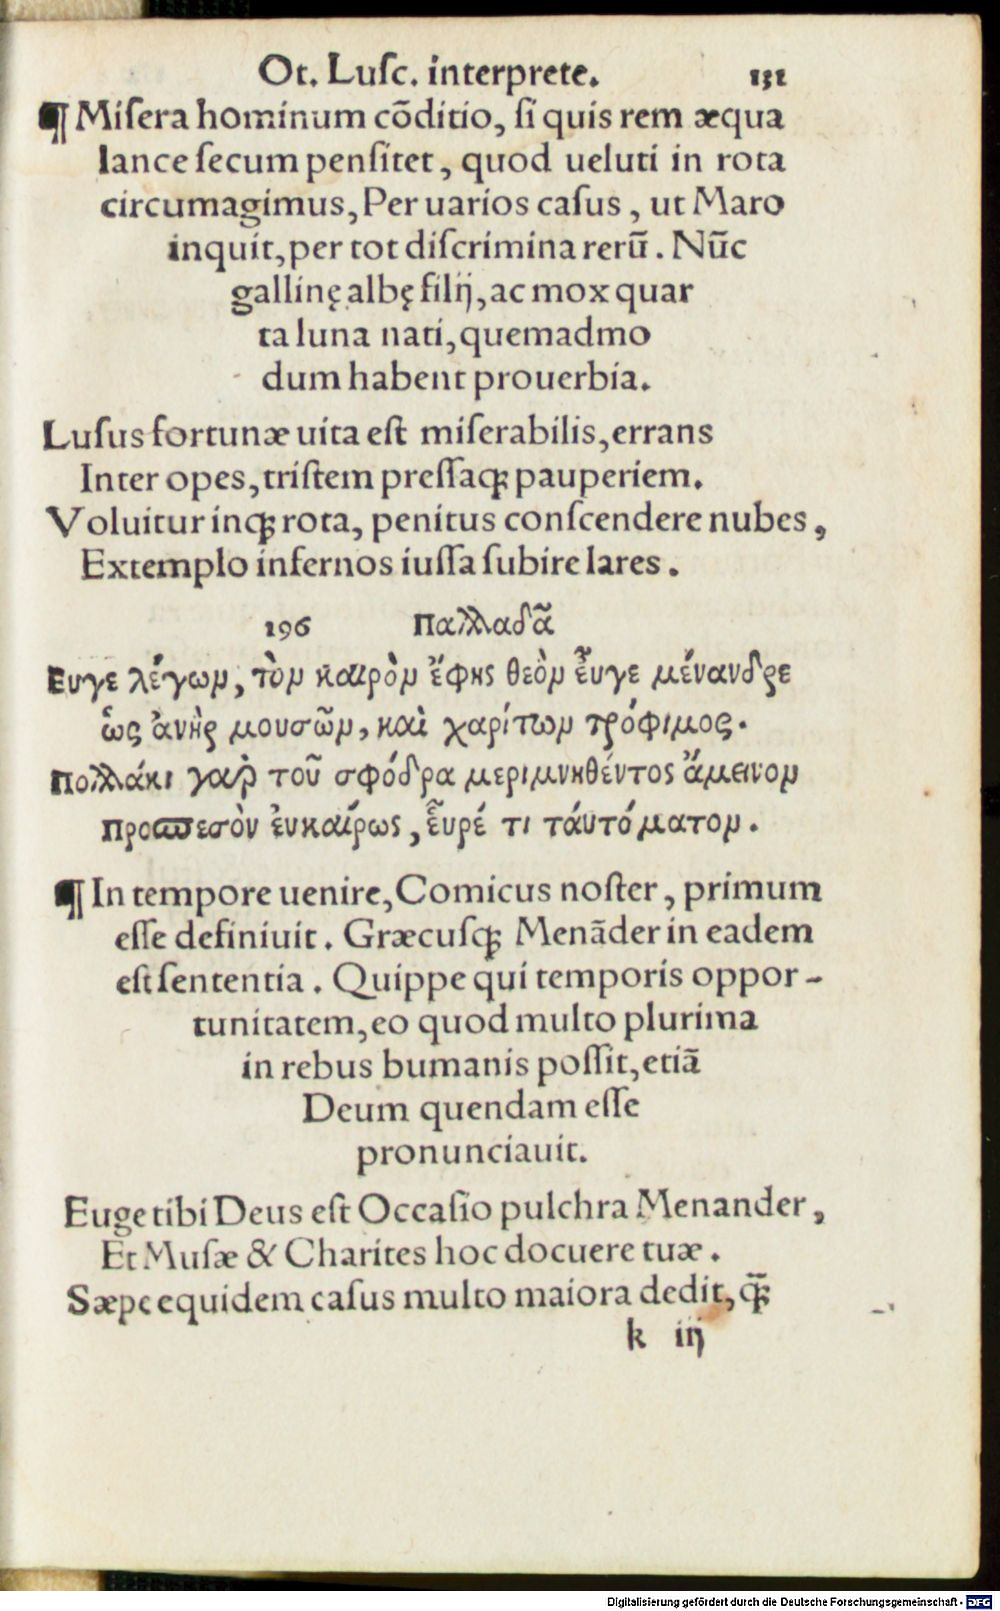 Ot. Lusc. interprete. 131
¶ Misera hominum cōditio, si quis rem æqua
lance secum pensitet, quod ueluti in rota
circumagimus, Per uarios casus, ut Maro
inquit, per tot discrimina rerū. Nūc
gallinę albę filij, ac mox quar
ta luna nati, quemadmo
dum habent prouerbia.
Lusus fortunæ uita est miserabilis, errans
Inter opes, tristem pressaq; pauperiem.
Voluitur inq; rota, penitus conscendere nubes,
Extemplo infernos iussa subire lares.
196 Παλλαδᾶ
Ευγε λέγων, τὸν καιρὸν ἔφης θεὸν ἔυγε μένανδρε
ὥς ἀνὴρ μουσῶν, καὶ χαρίτων τρόφιμος.
Πολλάκι γὰρ τοῦ σφόδρα μεριμνηθέντος ἄμεινον
Προσπεσὸν ἐυκαίρως, ἔυρέ τι τἀυτόματον.
¶ In tempore uenire, Comicus noster, primum
esse definiuit. Græcusq; Menāder in eadem
est sententia. Quippe qui temporis oppor-
tunitatem, eo quod multo plurima
in rebus bumanis possit, etiā
Deum quendam esse
pronunciauit.
Euge tibi Deus est Occasio pulchra Menander,
Et Musæ & Charites hoc docuere tuæ.
Sæpe equidem casus multo maiora dedit, q̄;
k iij
Digitalisierung gefördert durch die Deutsche Forschungsgemeinschaft - DFG